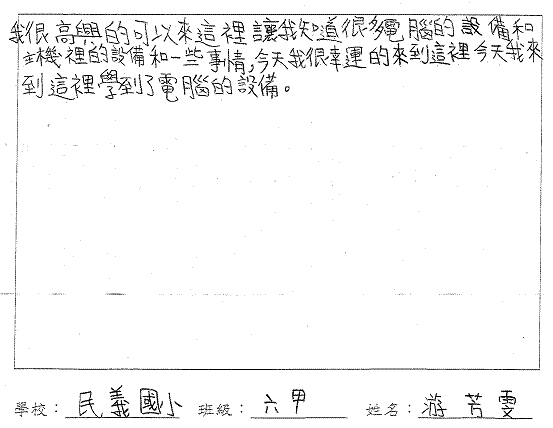 我很高興的可以來這裡讓我知道很多電腦的設備和
主機裡的設備和一些事情,今天我很幸運的來到這裡今天我來
到這裡學到了電腦的設備。
學校：民義國小 班級：六甲 姓名：游芳雯